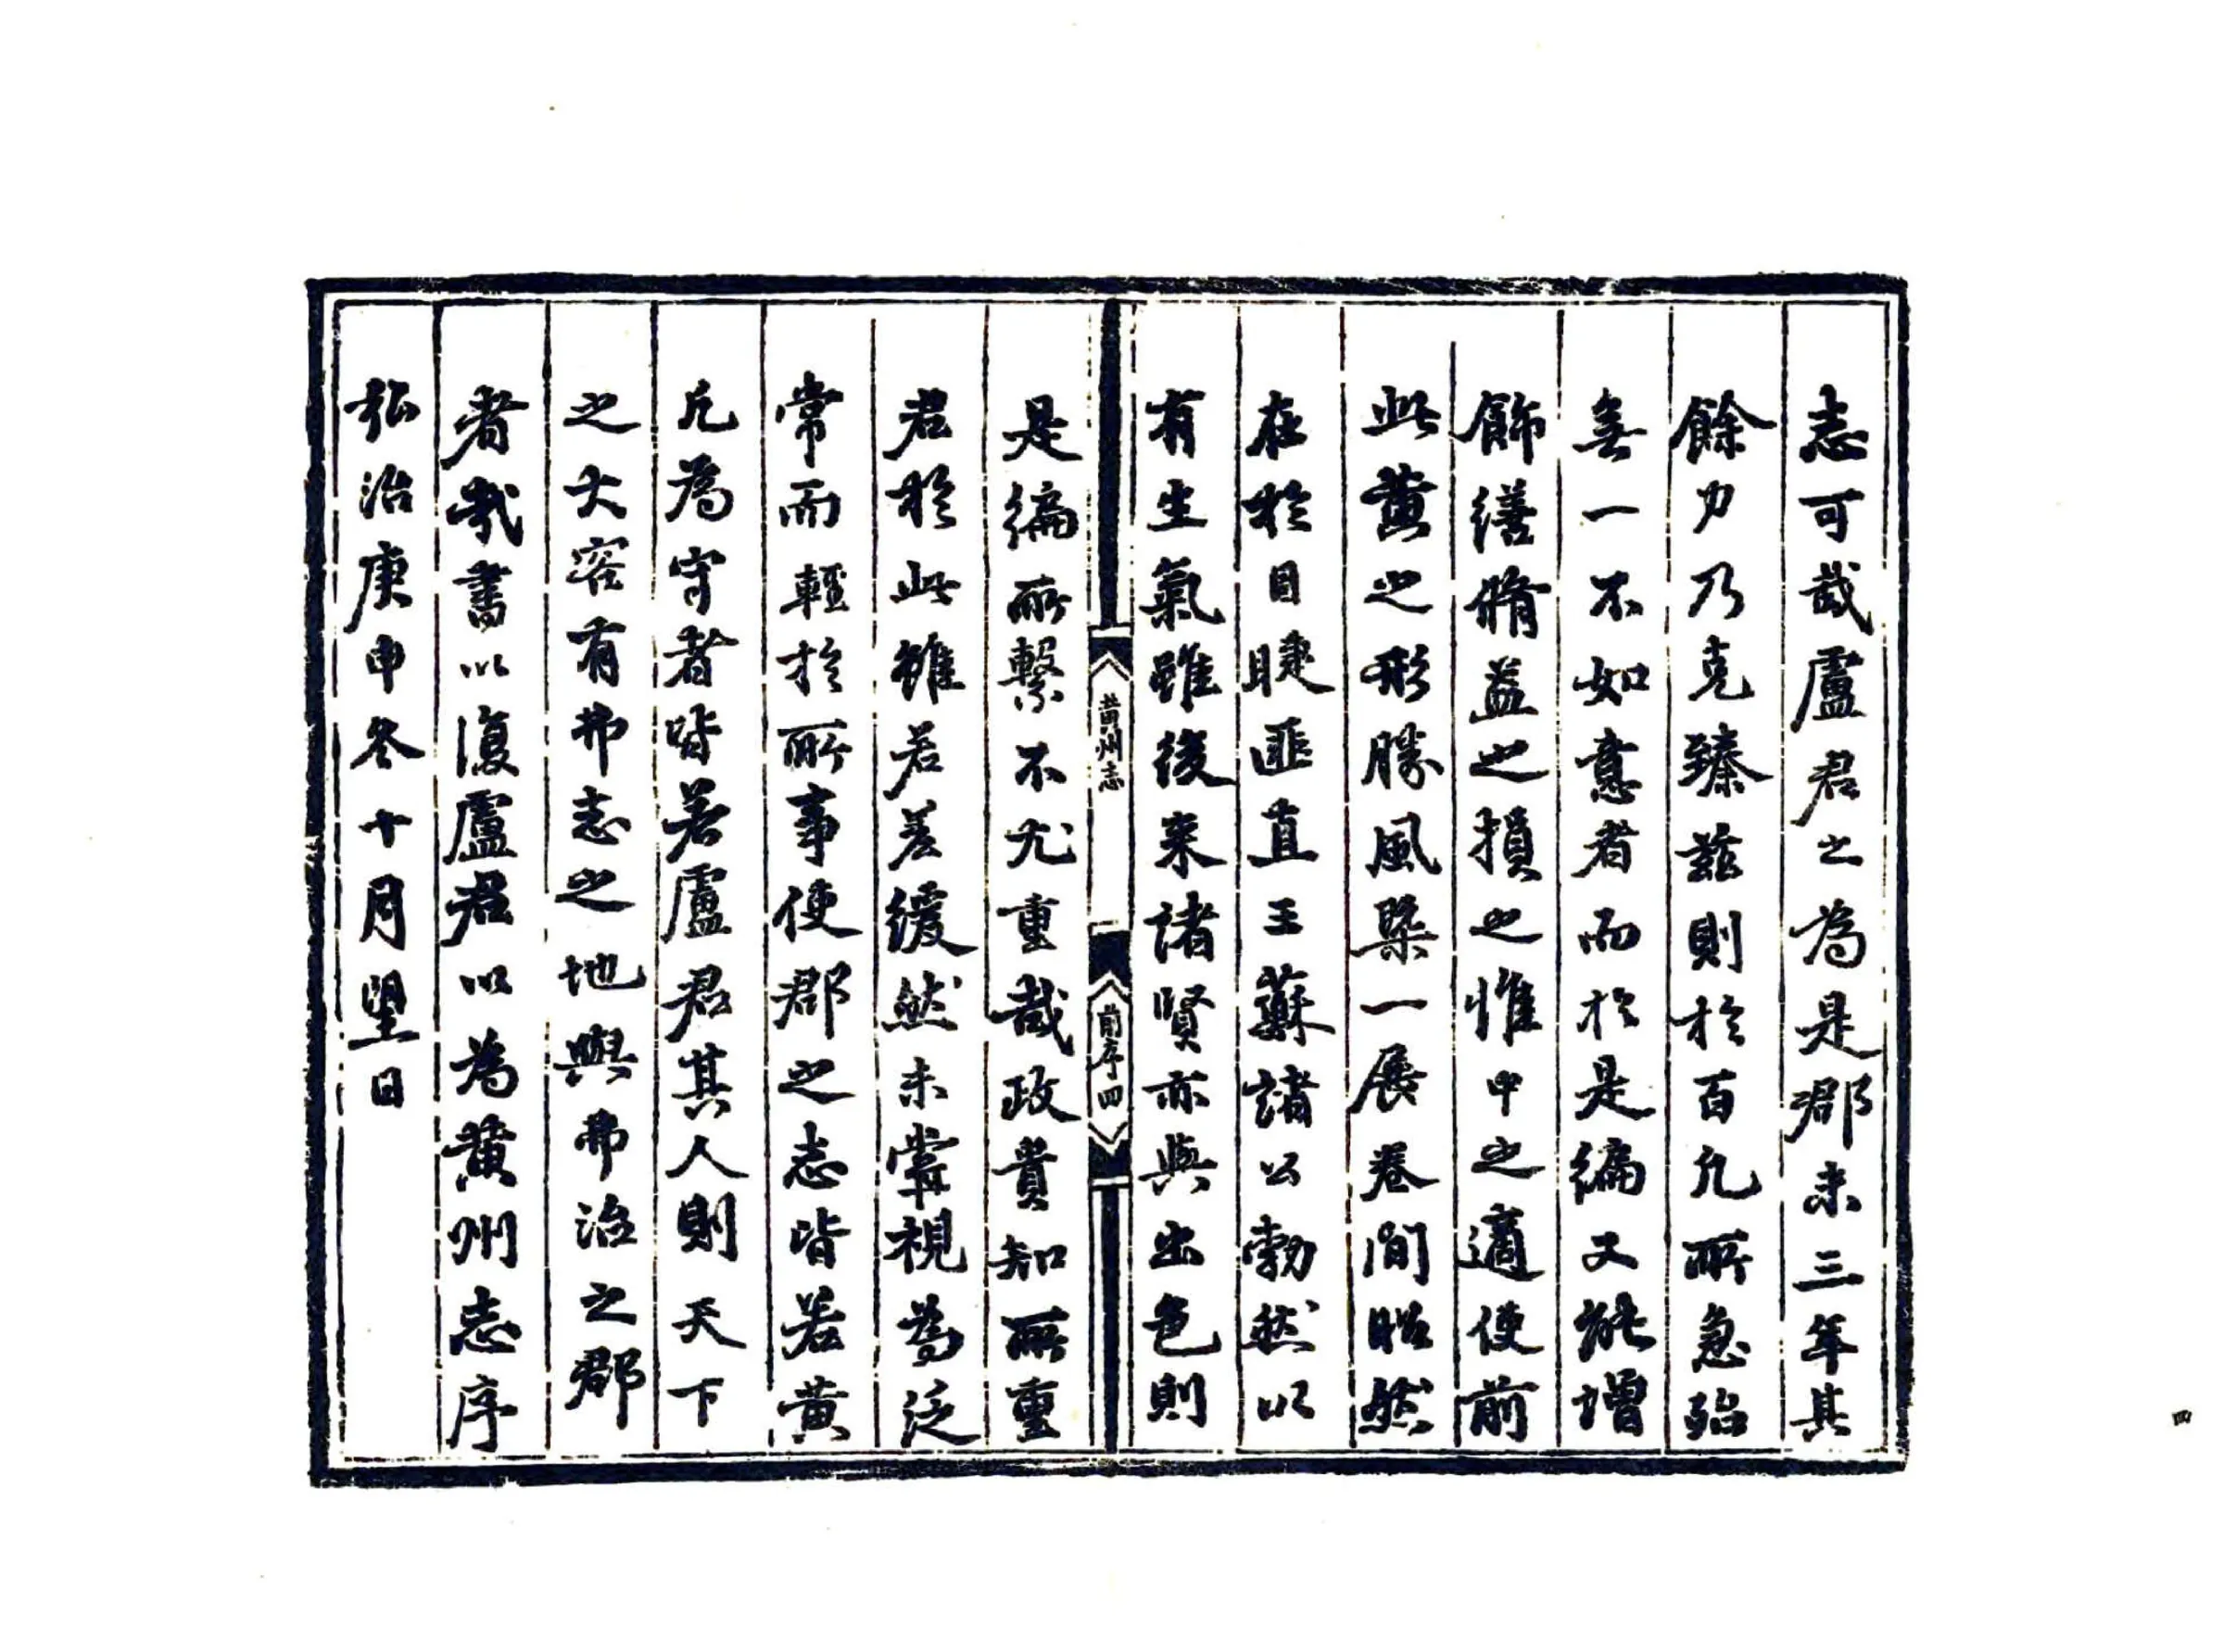 志可哉盧君之為是郡未三年其
餘力乃克臻茲則於百凡所急殆
無一不如意者而於是編又能增
飾繕脩益之損之惟中之適使前
此黃之形勝風槩一展卷間昭然
在於目睫匪直王蘇諸公勃然以
有生氣雖後来諸賢亦與出色則
黃州志
前序四
是編所繫不尤重哉政貴知所重
君於此雖若差緩然未嘗視為泛
常而輕於所事使郡之志皆若黃
凡為守者皆若盧君其人則天下
之大容有弗志之地與弗治之郡
者哉書以復盧君以為黃州志序
弘治庚申冬十月望日
四